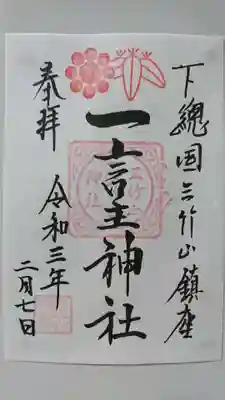 下総国三竹山鎮座
一言主神社
奉拝
令和三年
二月七日